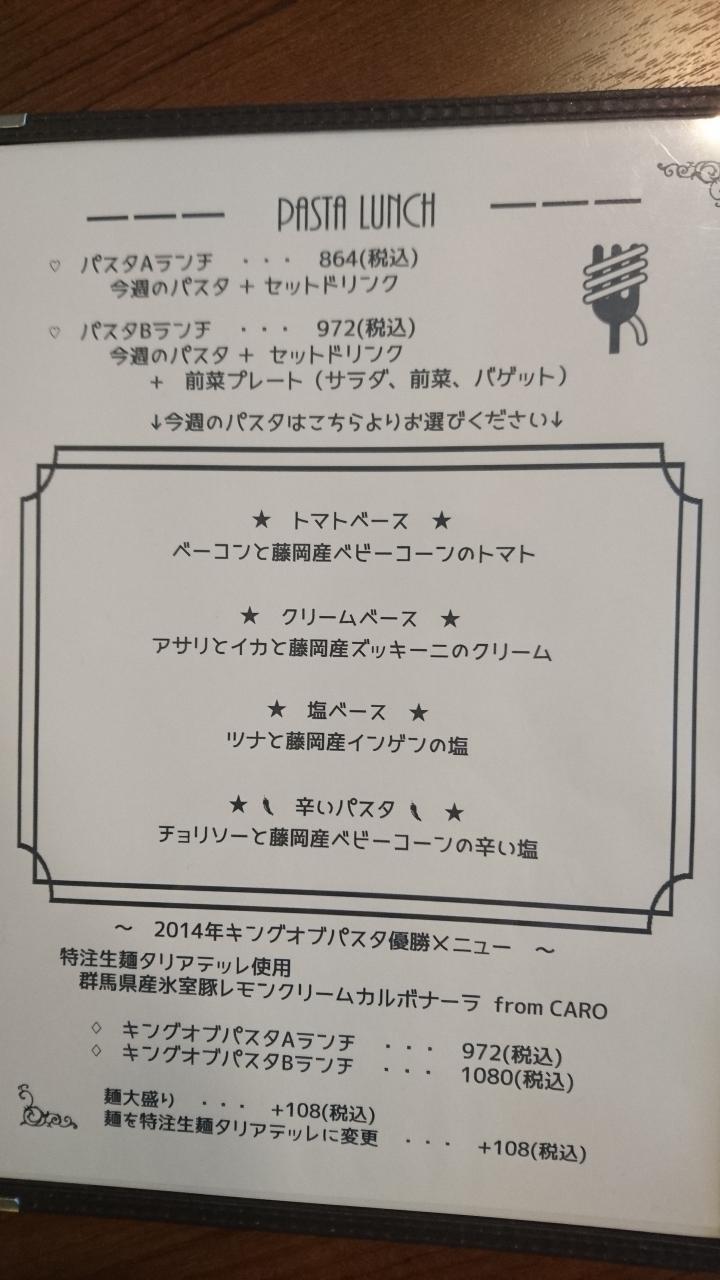 PASTA LUNCH
♡ パスタAランチ ・・・ 864(税込)
今週のパスタ + セットドリンク
♡ パスタBランチ ・・・ 972(税込)
今週のパスタ + セットドリンク
+ 前菜プレート（サラダ、前菜、バゲット）
↓今週のパスタはこちらよりお選びください↓
★ トマトベース ★
ベーコンと藤岡産ベビーコーンのトマト
★ クリームベース ★
アサリとイカと藤岡産ズッキーニのクリーム
★ 塩ベース ★
ツナと藤岡産インゲンの塩
★ 辛いパスタ ★
チョリソーと藤岡産ベビーコーンの辛い塩
～ 2014年キングオブパスタ優勝メニュー ～
特注生麺タリアテッレ使用
群馬県産氷室豚レモンクリームカルボナーラ from CARO
◇ キングオブパスタAランチ ・・・ 972(税込)
◇ キングオブパスタBランチ ・・・ 1080(税込)
麺大盛り ・・・ +108(税込)
麺を特注生麺タリアテッレに変更 ・・・ +108(税込)